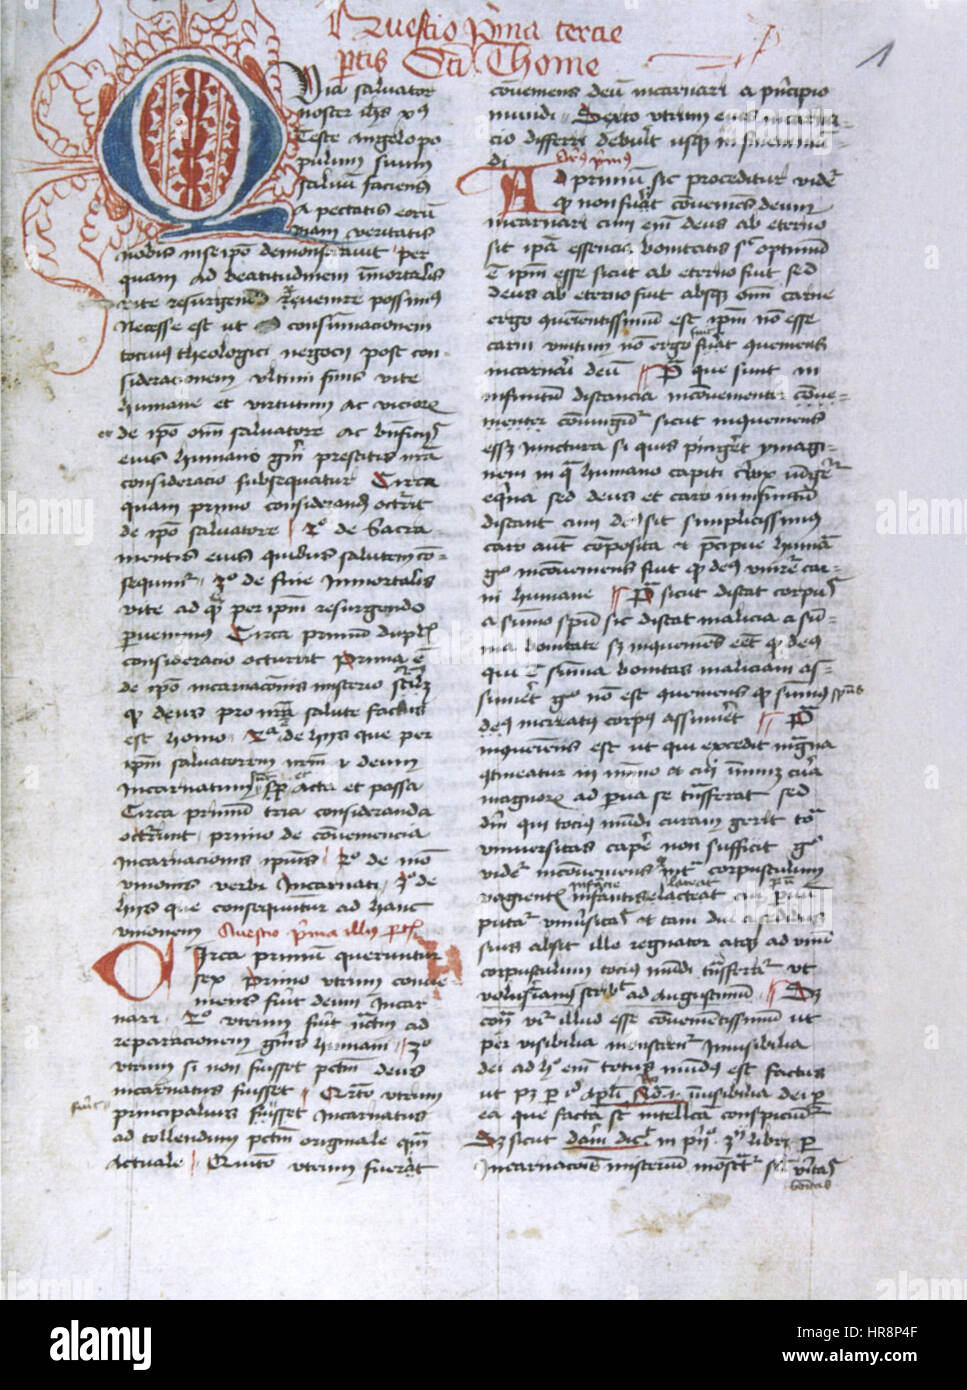 Questio prima tercie
ptis Sci Thome
1
Quia salvator
noster ihs xps
teste angelo po
pulum suum
salvum faciens
a peccatis eorum
viam veritatis
nobis in se ipso demonstravit per
quam ad beatitudinem immortalis
vite resurgendo pervenire possimus
Necesse est ut consummacionem
tocius theologici negocii post con
sideracionem ultimi finis vite
humane et virtutum ac viciorum
de ipso omnium salvatore ac beneficiis
eius humano generi prestitis nostra
consideracio subsequatur Circa
quam primo considerandum occurrit
de ipso salvatore 2o de Sacra
mentis eius quibus salutem con-
sequimur 3o de fine immortalis
vite ad quam per ipsum resurgendo
pervenimus Circa primum duplex
consideracio occurrit prima est
de ipso incarnacionis misterio secundum
quod deus pro nostra salute factus
est homo 2a de hiis que per
ipsum salvatorem nostrum et deum
incarnatum sunt acta et passa
Circa primum tria consideranda
occurrunt primo de conveniencia
incarnacionis ipsius 2o de modo
unionis verbi incarnati 3o de
hiis que consequuntur ad hanc
unionem Questio prima illius partis
Circa primum queruntur
sex primo utrum conve
niens fuerit deum incar
nari 2o utrum fuerit necessarium ad
reparacionem generis humani 3o
utrum si non fuisset peccatum deus
incarnatus fuisset Quarto utrum
principalius fuisset incarnatus
ad tollendum peccatum originale quam
actuale Quinto utrum fuerit
conveniens deum incarnari a principio
mundi Sexto utrum eius incarna-
cio differri debuerit usque in finem mun
di
Ad primum sic proceditur videtur
quod non fuerit conveniens deum
incarnari cum enim deus ab eterno
sit ipsa essencia bonitatis sic optimum
est ipsum esse sicut ab eterno fuit sed
deus ab eterno fuit absque omni carne
ergo convenientissimum est ipsum non esse
carni unitum non ergo fuerat conveniens
incarnari deum P que sunt in
infinitum distancia inconvenienter conve-
nienter coniungitur sicut inconveniens
esset iunctura si quis pingeret ymagi
nem in qua humano capiti cervix iungeretur
equina sed deus et caro in infinitum
distant cum deus sit simplicissimus
caro autem composita et precipue humana
ergo inconveniens fuit quod deus uniretur car-
ni humane P sicut distat corpus
a summo spiritu sic distat malicia a sum
ma bonitate sed inconveniens esset quod deus
qui est summa bonitas maliciam as-
sumeret ergo non est conveniens quod summus spiritus
deus increatus corpus assumeret P
inconveniens est ut qui excedit magna
contineatur in minimo et cui imminet cura
magnorum ad parva se transferat sed
deus qui tocius mundi curam gerit tota
universitas capere non sufficit ergo
videtur inconveniens quod intra corpusculum
vagientis infancie
putatur universitas et tam diu a sedibus
suis absit ille regnator atque ad unum
corpusculum tocius mundi transferatur ut
volusianus scribit ad Augustinum Sed
contra videtur illud esse convenientissimum ut
per visibilia monstrentur invisibilia
dei ad hoc enim totus mundus est factus
ut patet per id apli Ro. i invisibilia dei per
ea que facta sunt intellecta conspiciuntur
Sed sicut dam dicit in principio 3ii libri per
incarnacionis misterium monstratur simul
bonitas